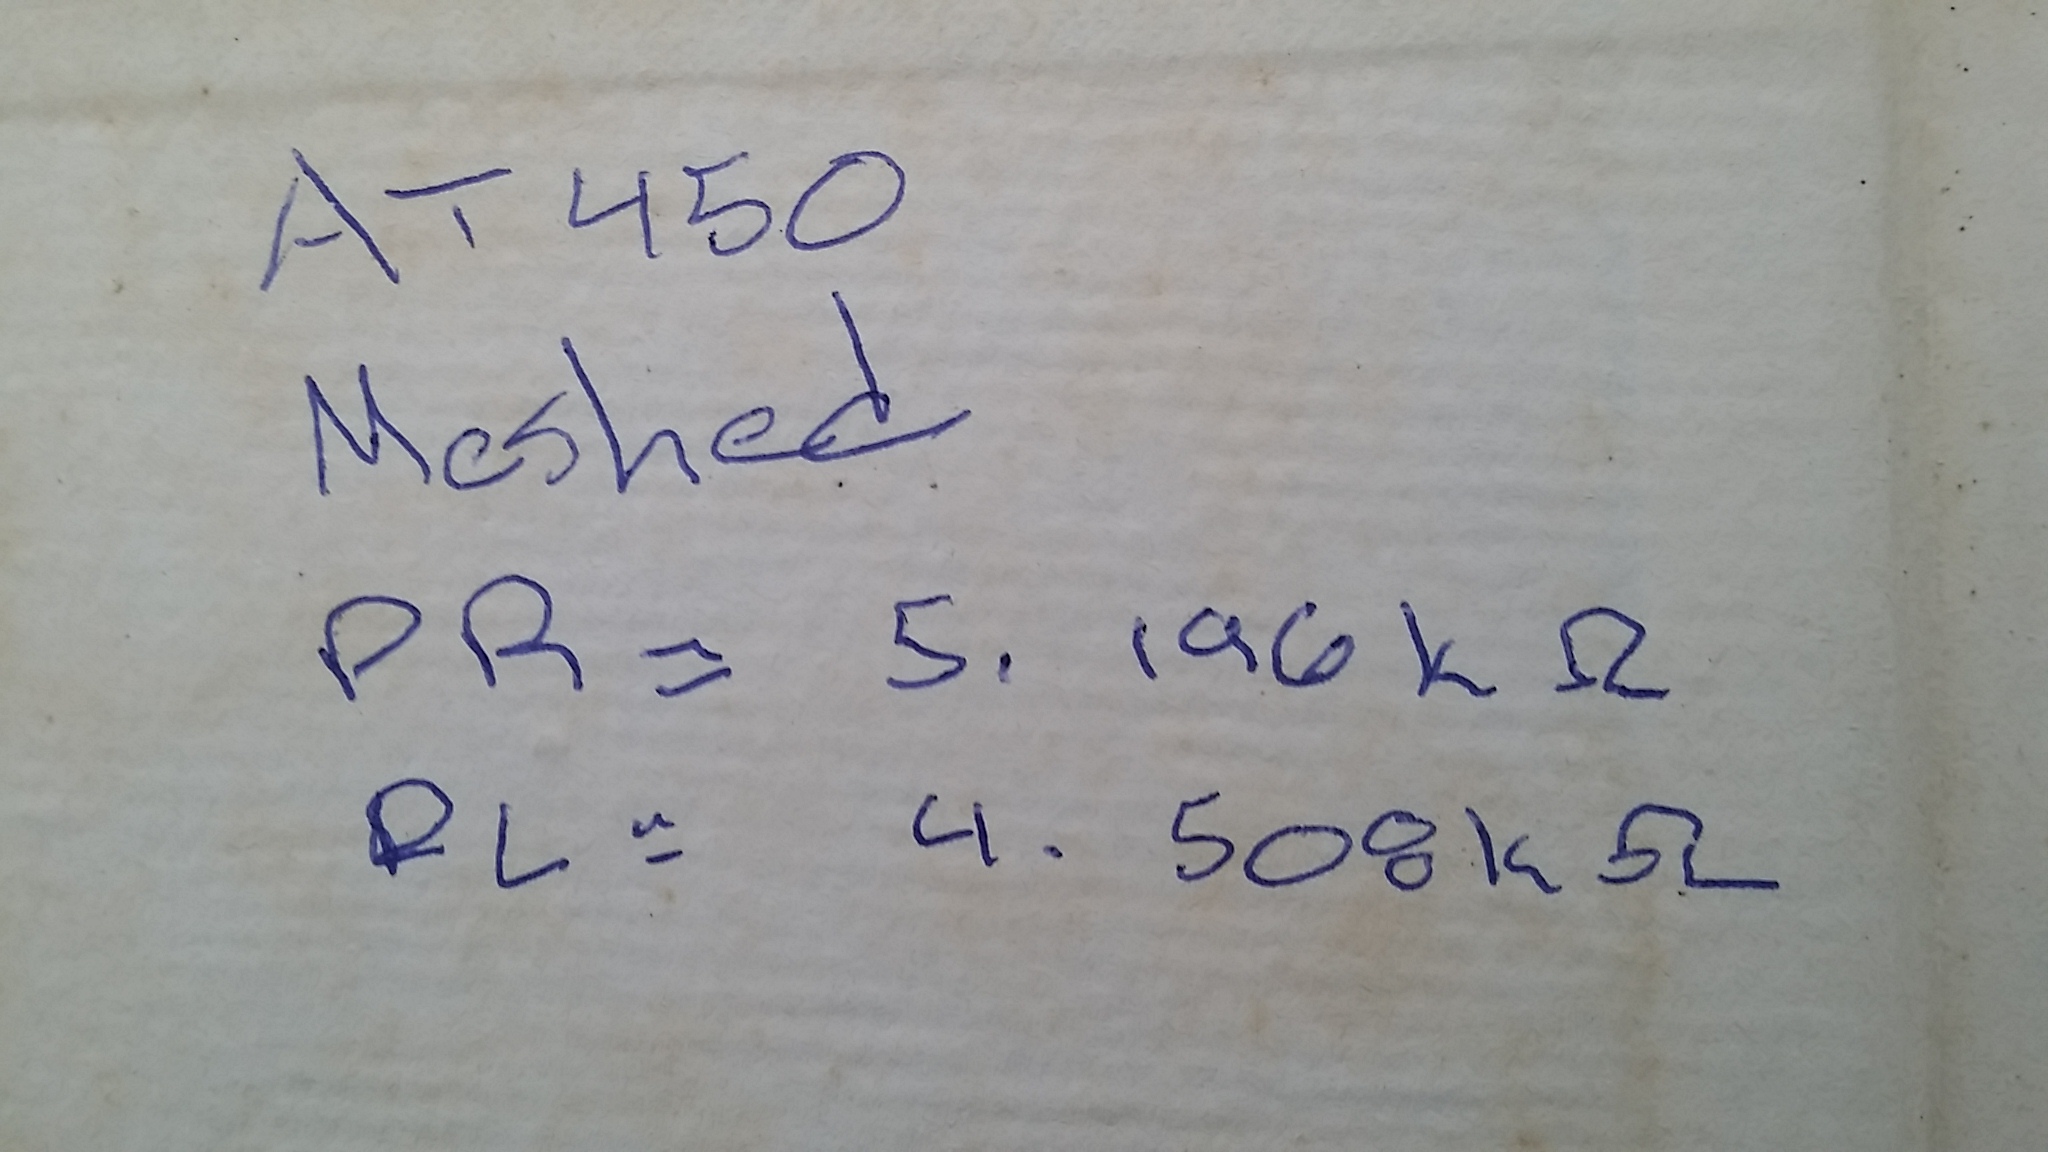 AT450
Meshed
PR = 5.196kΩ
RL = 4.508kΩ